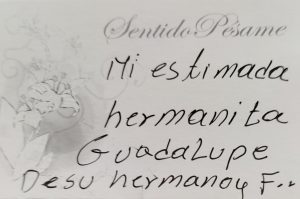 Sentido Pésame
Mi estimada
hermanita
GuadaLupe
Desu hermanoy F..